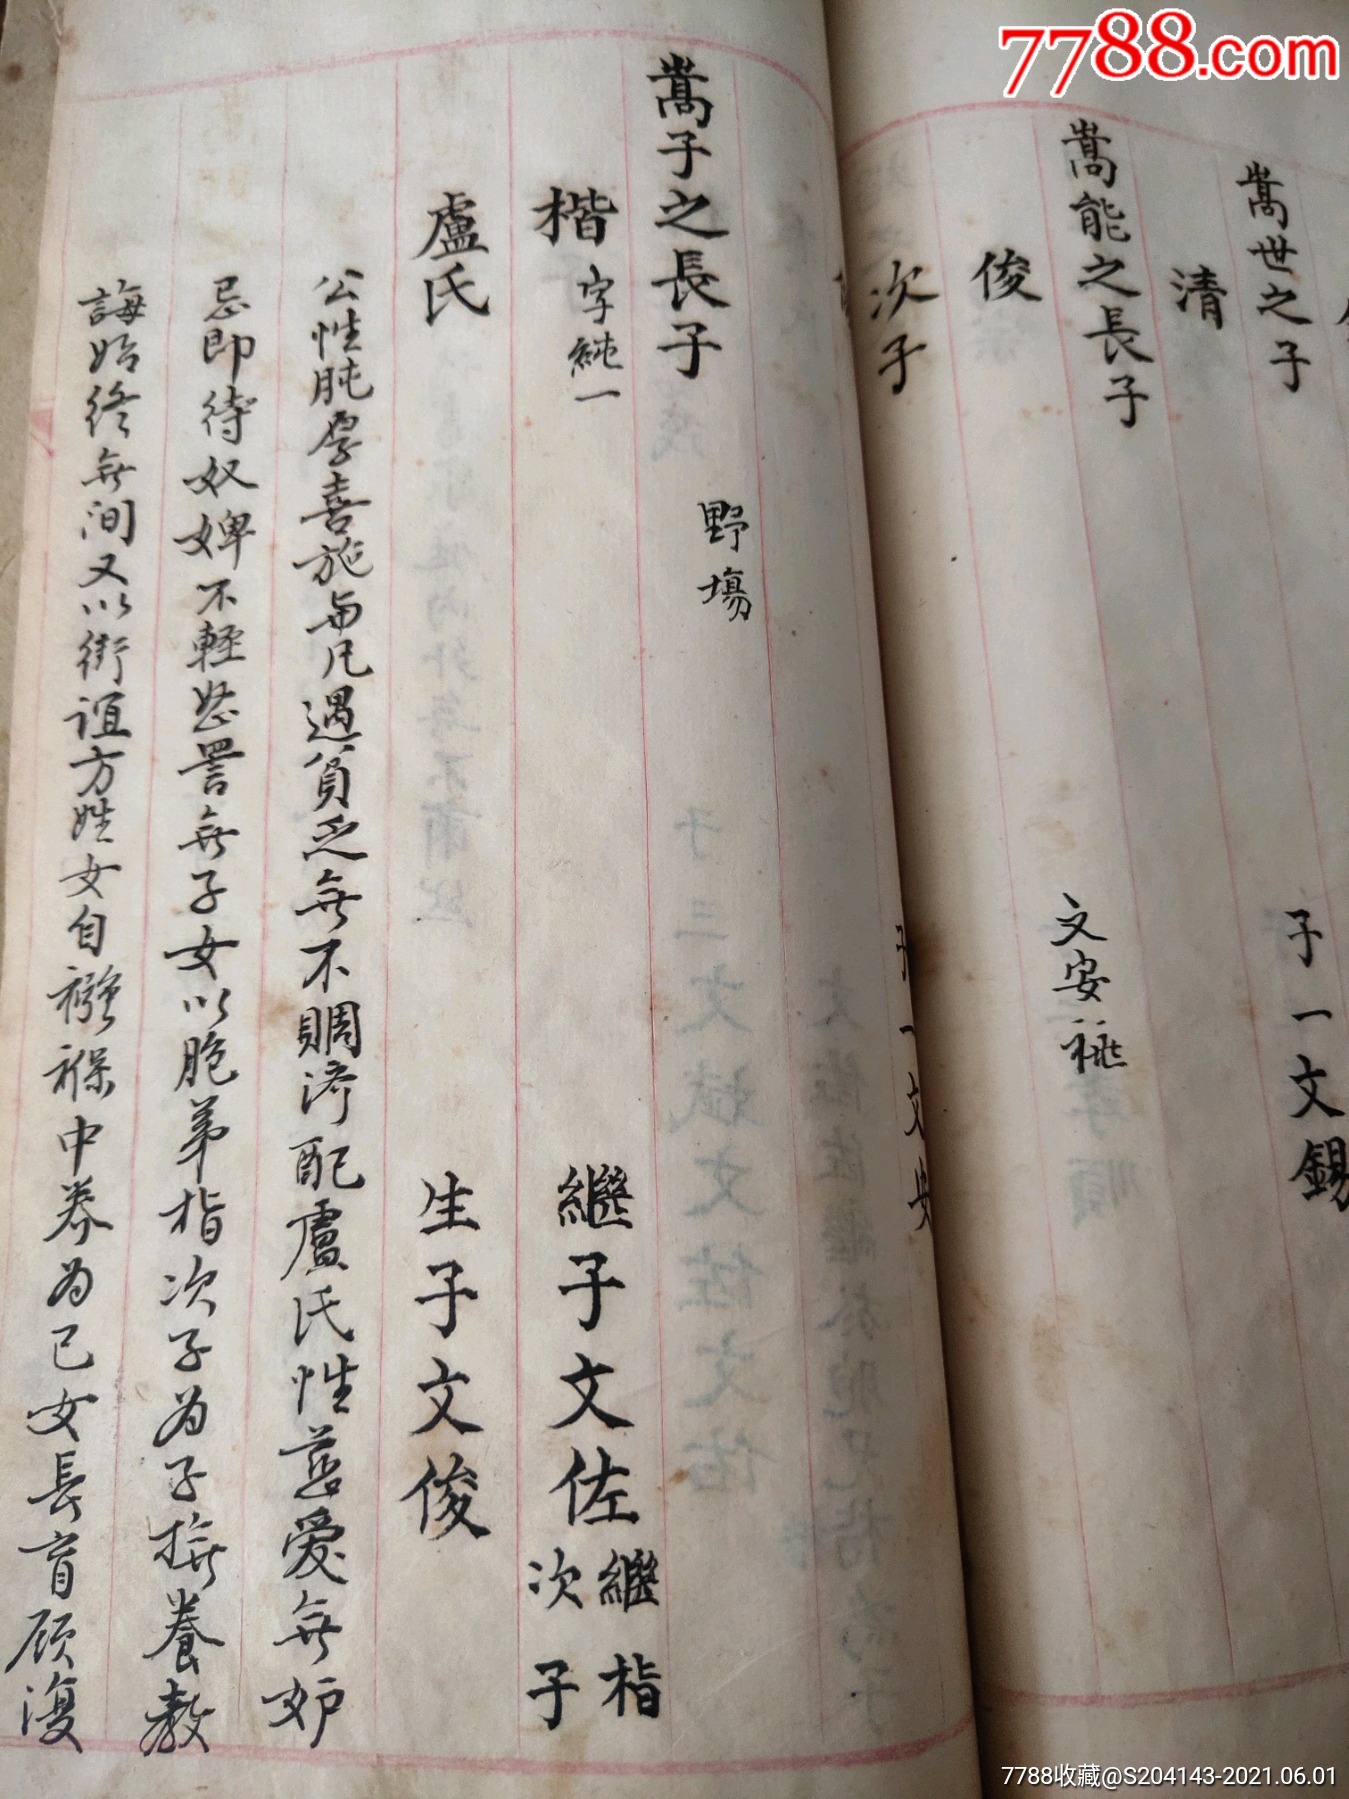 7788.com
嵩世之子
清
子一文錫
嵩能之長子
俊
文安祧
次子
子一文安
野塲
嵩子之長子
楷 字純一
繼子文佐 繼楷次子
盧氏
生子文俊
公性肫厚喜施与凡遇貧乏無不賙濟配盧氏性慈愛無妒
忌即待奴婢不輕怒詈無子女以胞弟楷次子為子撫養教
誨始终無间又以街誼方姓女自襁褓中养為己女長盲顾復
7788收藏@S204143-2021.06.01